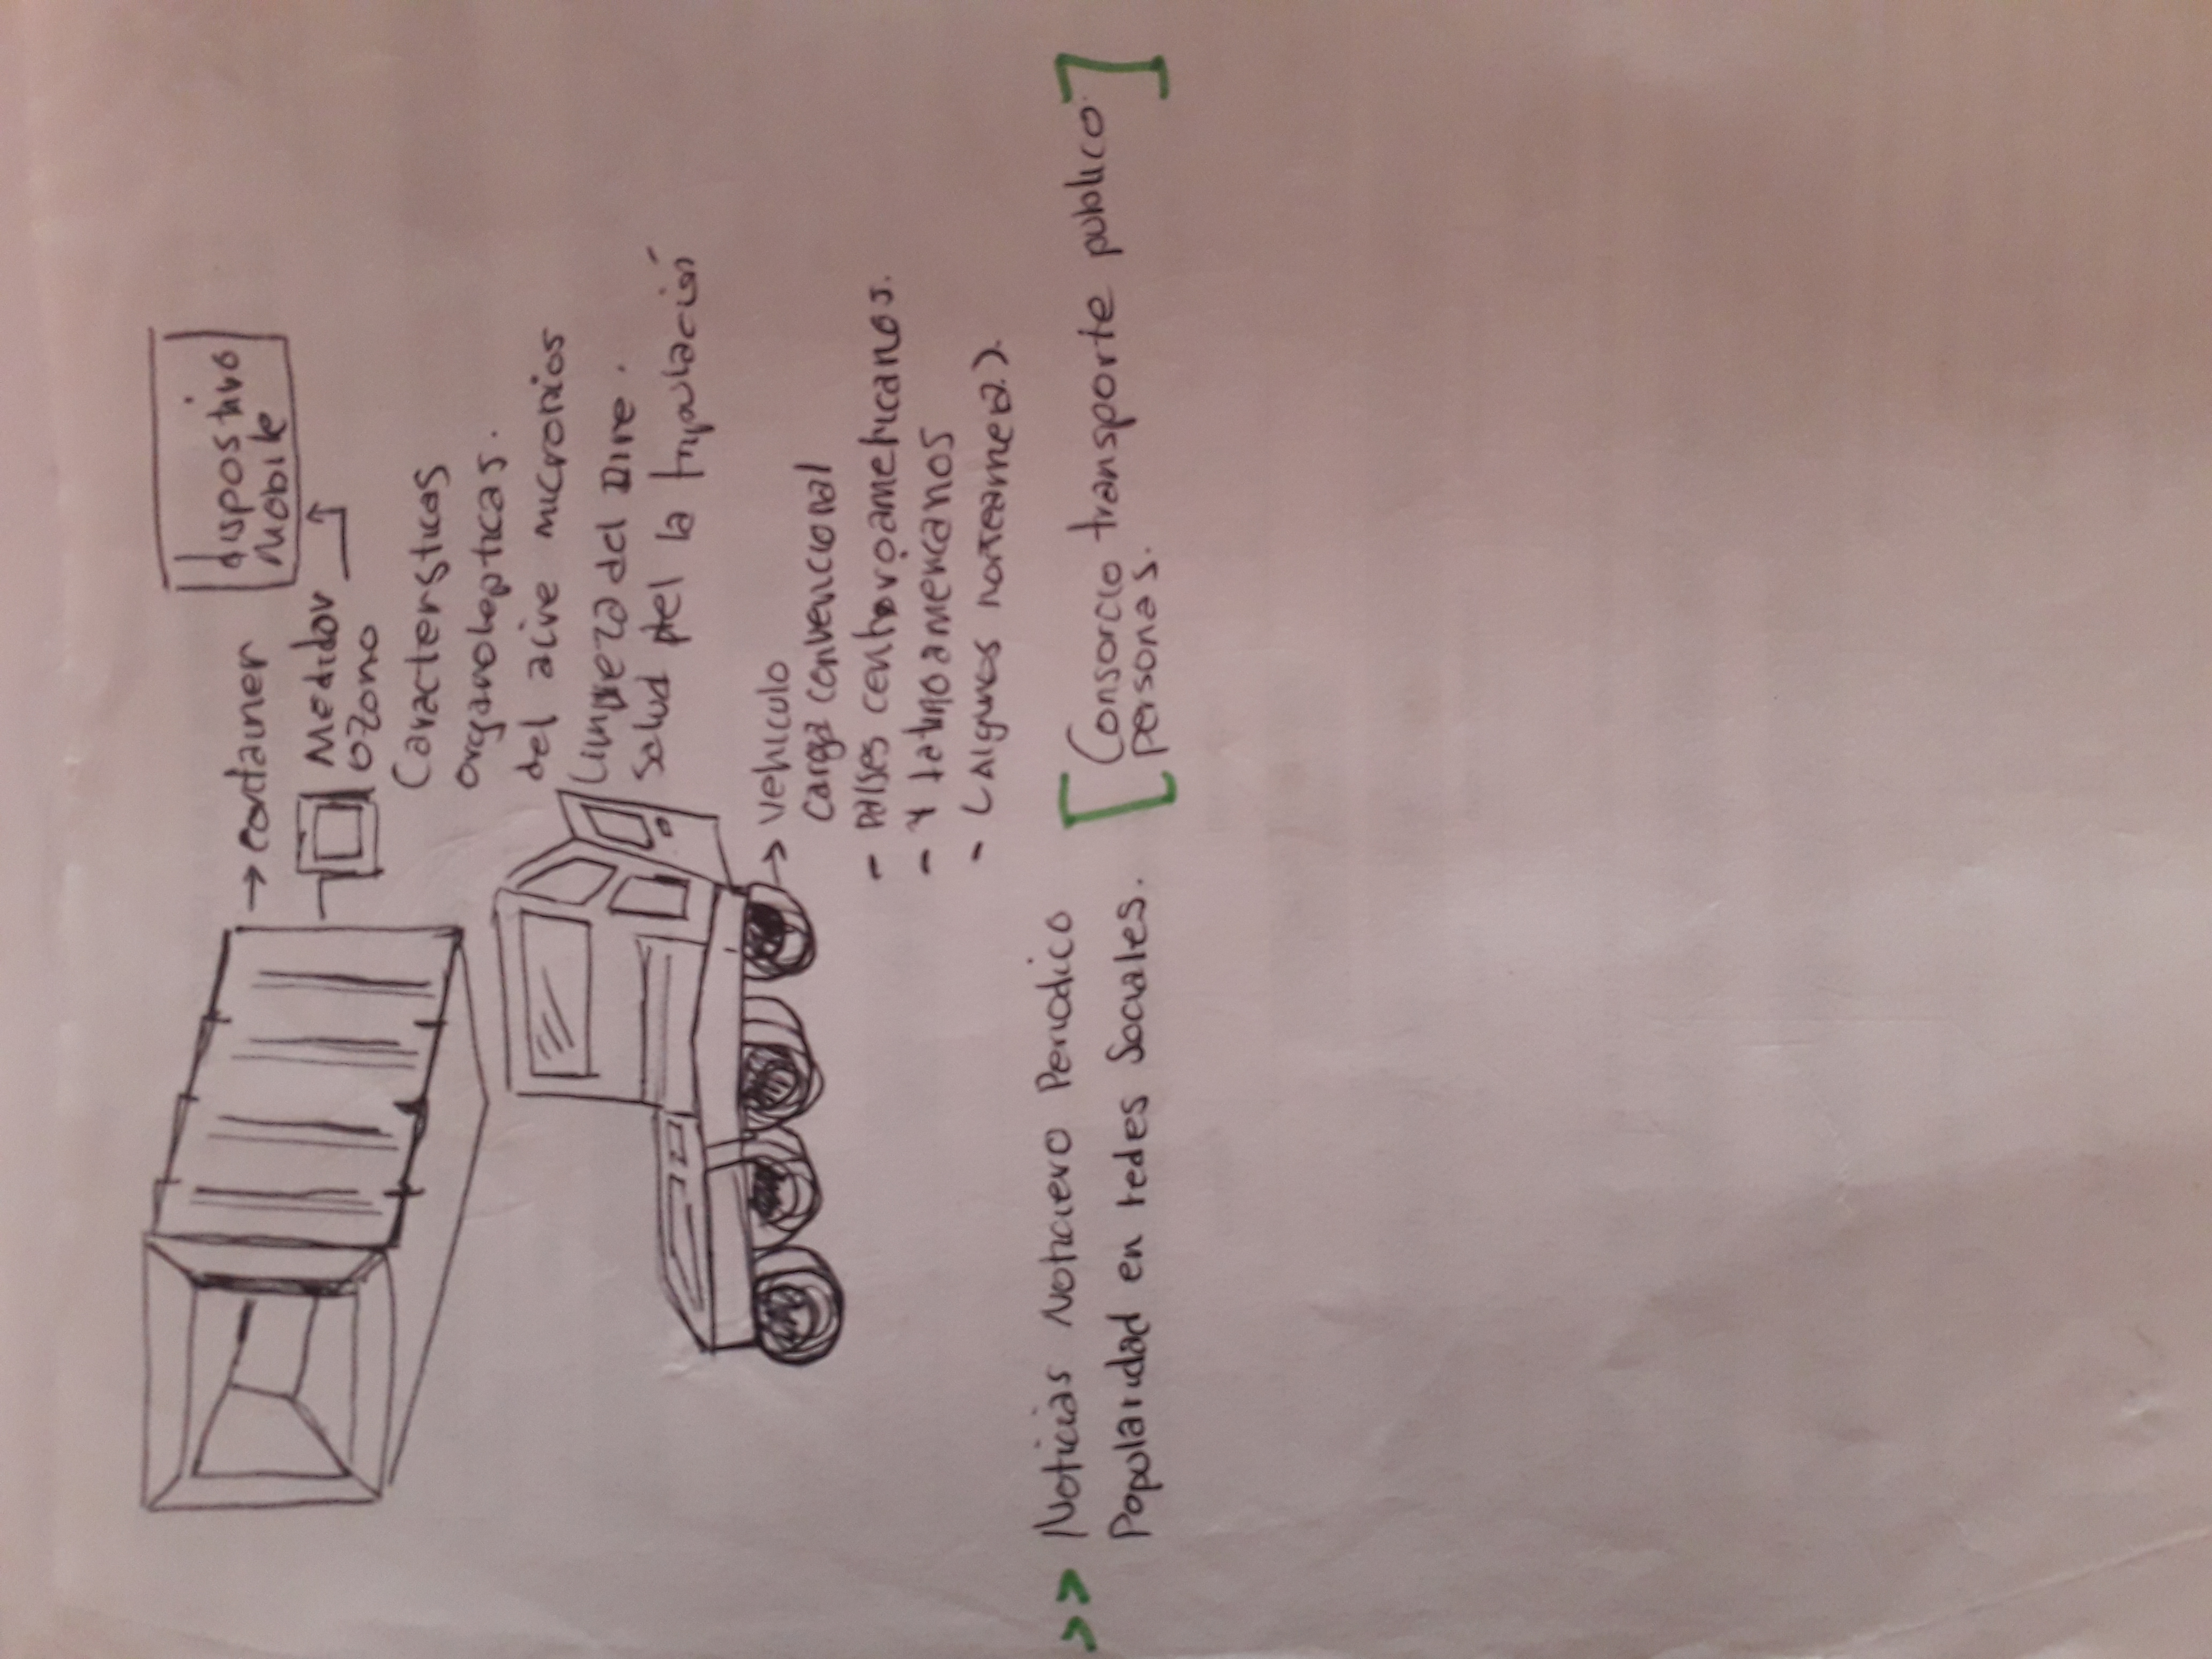 → container
dispositivo
Mobile
Medidor
ozono
Caractersticas
organolepticas.
del aire micronios
Limpieza del Aire.
Salud del la tripulación
→ vehiculo
carga convencional
- paises centroamericanos.
- Y latinoamericanos
- (Algunos norteamer.)
>> Noticias Noticiero Periodico
Popolaridad en redes Sociales.
[Consorcio transporte publico.
personas.]